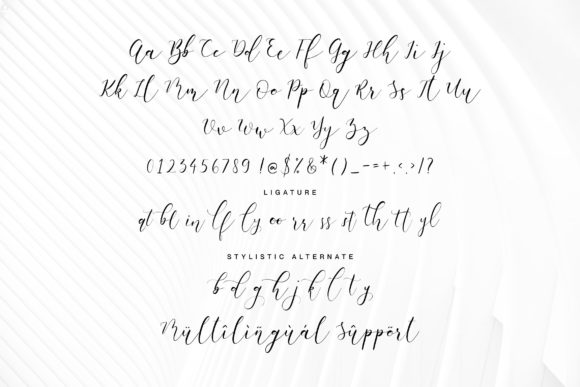 Aa Bb Cc Dd Ee Ff Gg Hh Ii Jj
Kk Ll Mm Nn Oo Pp Qq Rr Ss Tt Uu
Vv Ww Xx Yy Zz
0123456789 !@$%&*()_-=+,<.>/?
LIGATURE
at bl in lf ly oo rr ss st th tt yl
STYLISTIC ALTERNATE
b d g h j k l t y
Mültîlïñgùál Sûppërt